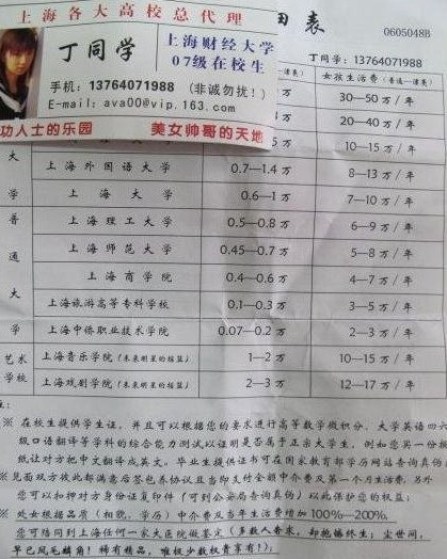 上海各大高校总代理
田表
0605048B
丁同学
上海财经大学
07级在校生
手机：13764071988（非诚勿扰！）
E-mail：ava00@vip.163.com
功人士的乐园 美女帅哥的天地
丁同学：13764071988
女孩生活费
万 30—50万/年
万 20—40万/年
5万 10—15万/年
大 上海外国语大学 0.7—1.4万 8—13万/年
学 上海大学 0.6—1万 7—10万/年
普 上海理工大学 0.5—0.8万 6—9万/年
通 上海师范大学 0.45—0.7万 5—8万/年
上海商学院 0.4—0.6万 4—7万/年
大 上海旅游高等专科学校 0.1—0.3万 3—5万/年
学 上海中侨职业技术学院 0.07—0.2万 2—3万/年
艺术 上海音乐学院（未来明星的摇篮） 1—2万 10—15万/年
学校 上海戏剧学院（未来明星的摇篮） 2—3万 12—17万/年
※ 在校生提供学生证，并且可以根据您的要求进行高等数学微积分、大学英语四六
级口语翻译等学科的综合能力测试以证明是否属于正宗大学生，例如您买一份报
纸让对方把中文翻译成英文。毕业生提供证书可在国家教育部学历网站查询真伪
※ 见面双方彼此都满意后签包养协议且当即支付全额中介费及第一个月生活费，另外
您可以和对方身份证复印件（可到公安局查询真伪）以此保护您的权益；
※ 处女根据品质（相貌、学历）中介费及当年生活费增加100%—200%，
您可陪同到上海任何一家大医院做鉴定（多数人要求，却抱憾终生；尘世间，
早已凤毛麟角！稀有精品，唯极少数权贵享有！）。